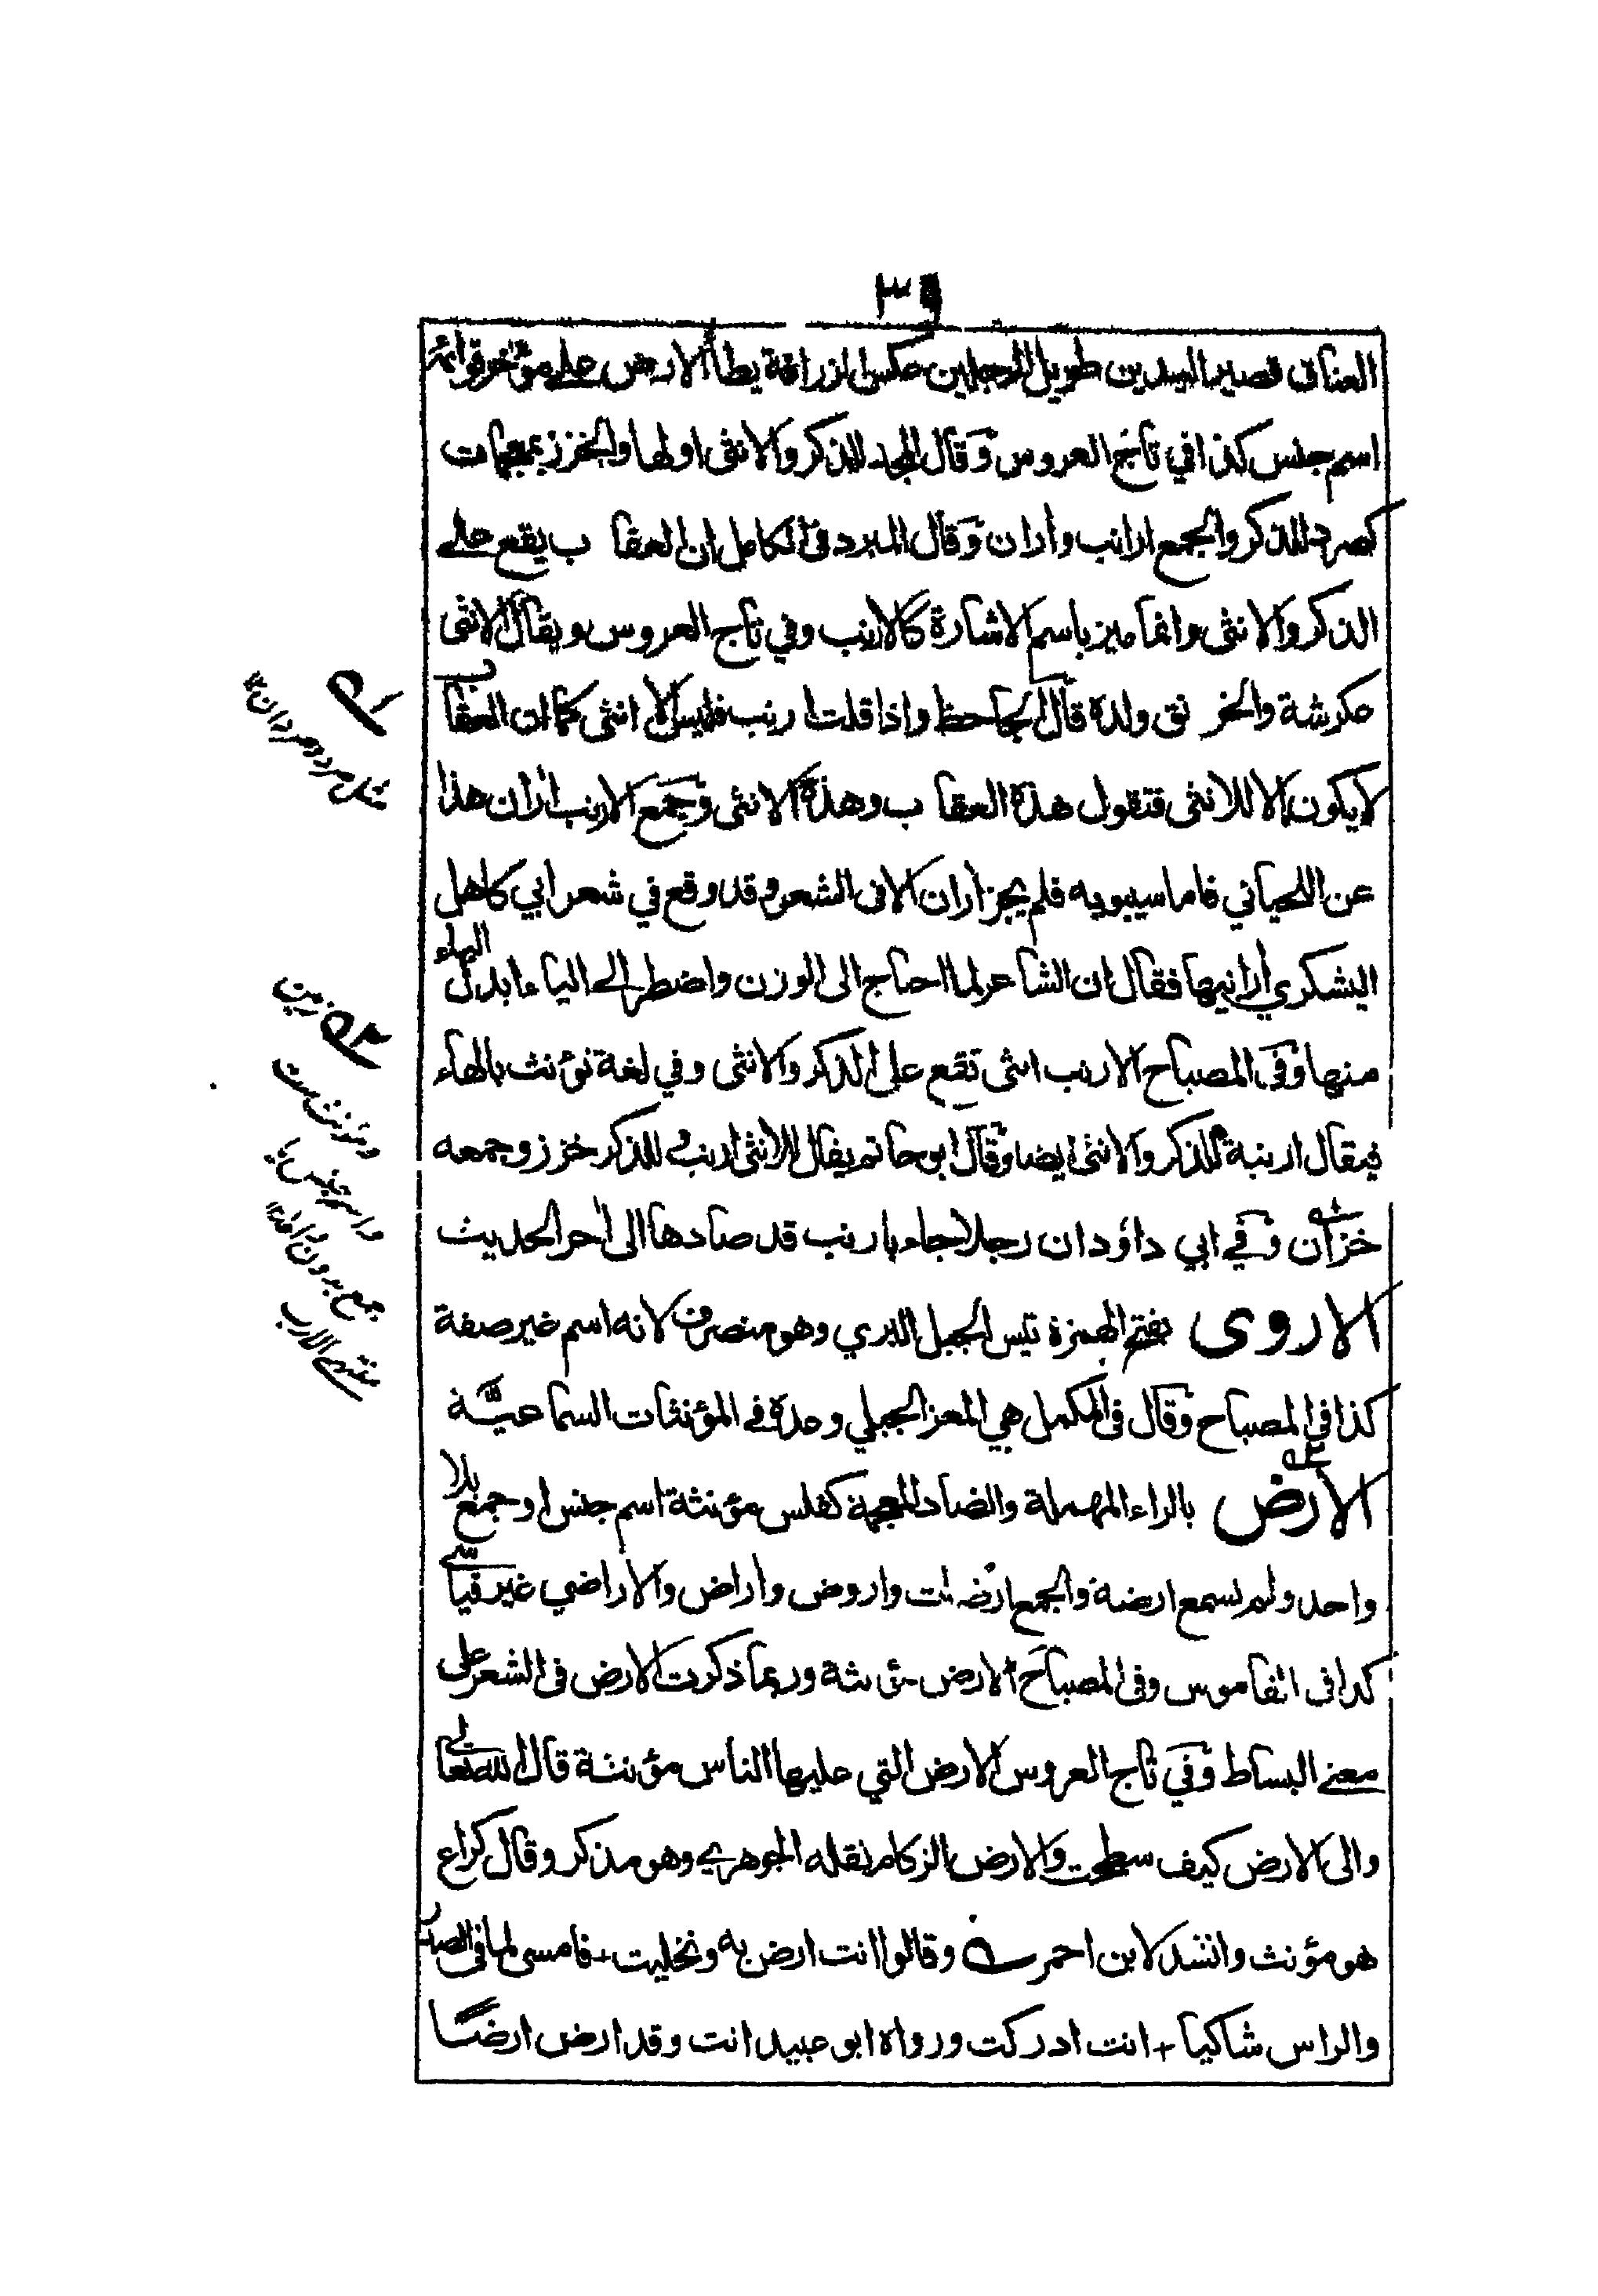 ٣٩
العناق قصير اليدين طويل الرجلين عكس الزرافة يطأ الارض على مؤخر قوائمه
اسم جنس كذا في تاج العروس وقال المجد للذكر والانثى اولها والخزز بمعجمات
كصرد للذكر والجمع ارانب واران وقال المبرد في الكامل ان العقاب يقع على
الذكر والانثى وانما ميز باسم الاشارة كالارنب وفي تاج العروس ويقال الانثى
عكرشة والخرنق ولده قال الجاحظ واذا قلت ارنب فليس الا انثى كما ان العقاب
لا يكون الا للانثى فتقول هذه العقاب وهذه الانثى وجمع الارنب اران هذا
عن اللحياني فاما سيبويه فلم يجز اران الا فى الشعر وقد وقع في شعر ابي كاهل
اليشكري ارانيها فقال ان الشاعر لما احتاج الى الوزن واضطر الى الياء ابدل الهاء
منها وفى المصباح الارنب انثى تقع على الذكر والانثى وفي لغة تؤنث بالهاء
فيقال ارنبة للذكر والانثى ايضا وقال ابو حاتم يقال للانثى ارنب وللذكر خزز وجمعه
خزان وفي ابي داؤد ان رجلا جاء بارنب قد صادها الى اخر الحديث
الاروى بفتح الهمزة تيس الجبل البري وهو منصرف لانه اسم غير صفة
كذا في المصباح وقال فى المكمل هي المعز الجبلي وعده في المؤنثات السماعيّة
الارض بالراء المهملة والضاد المعجمة كفلس مؤنثة اسم جنس او جمع بلا
واحد ولم تسمع ارضة والجمع ارضات واروض واراض والاراضي غير قياسي
كذا فى القاموس وفى المصباح الارض مؤنثة وربما ذكرت الارض فى الشعر على
معنى البساط وفي تاج العروس الارض التي عليها الناس مؤنثة قال الله تعالى
والى الارض كيف سطحت والارض الزكام نقله الجوهري وهو مذكر وقال كراع
هو مؤنث وانشد لابن احمر وقالوا انت ارض به وتخليت + فامسى لما فى الصدر
والراس شاكيا + انت ادركت ورواه ابو عبيد انت وقد ارض ارضا
مثل صرد وصردان ١٢
زمين
ومؤنث ست
واسم جنس يا
جمع بدون واحد ١٢
منتهى الارب